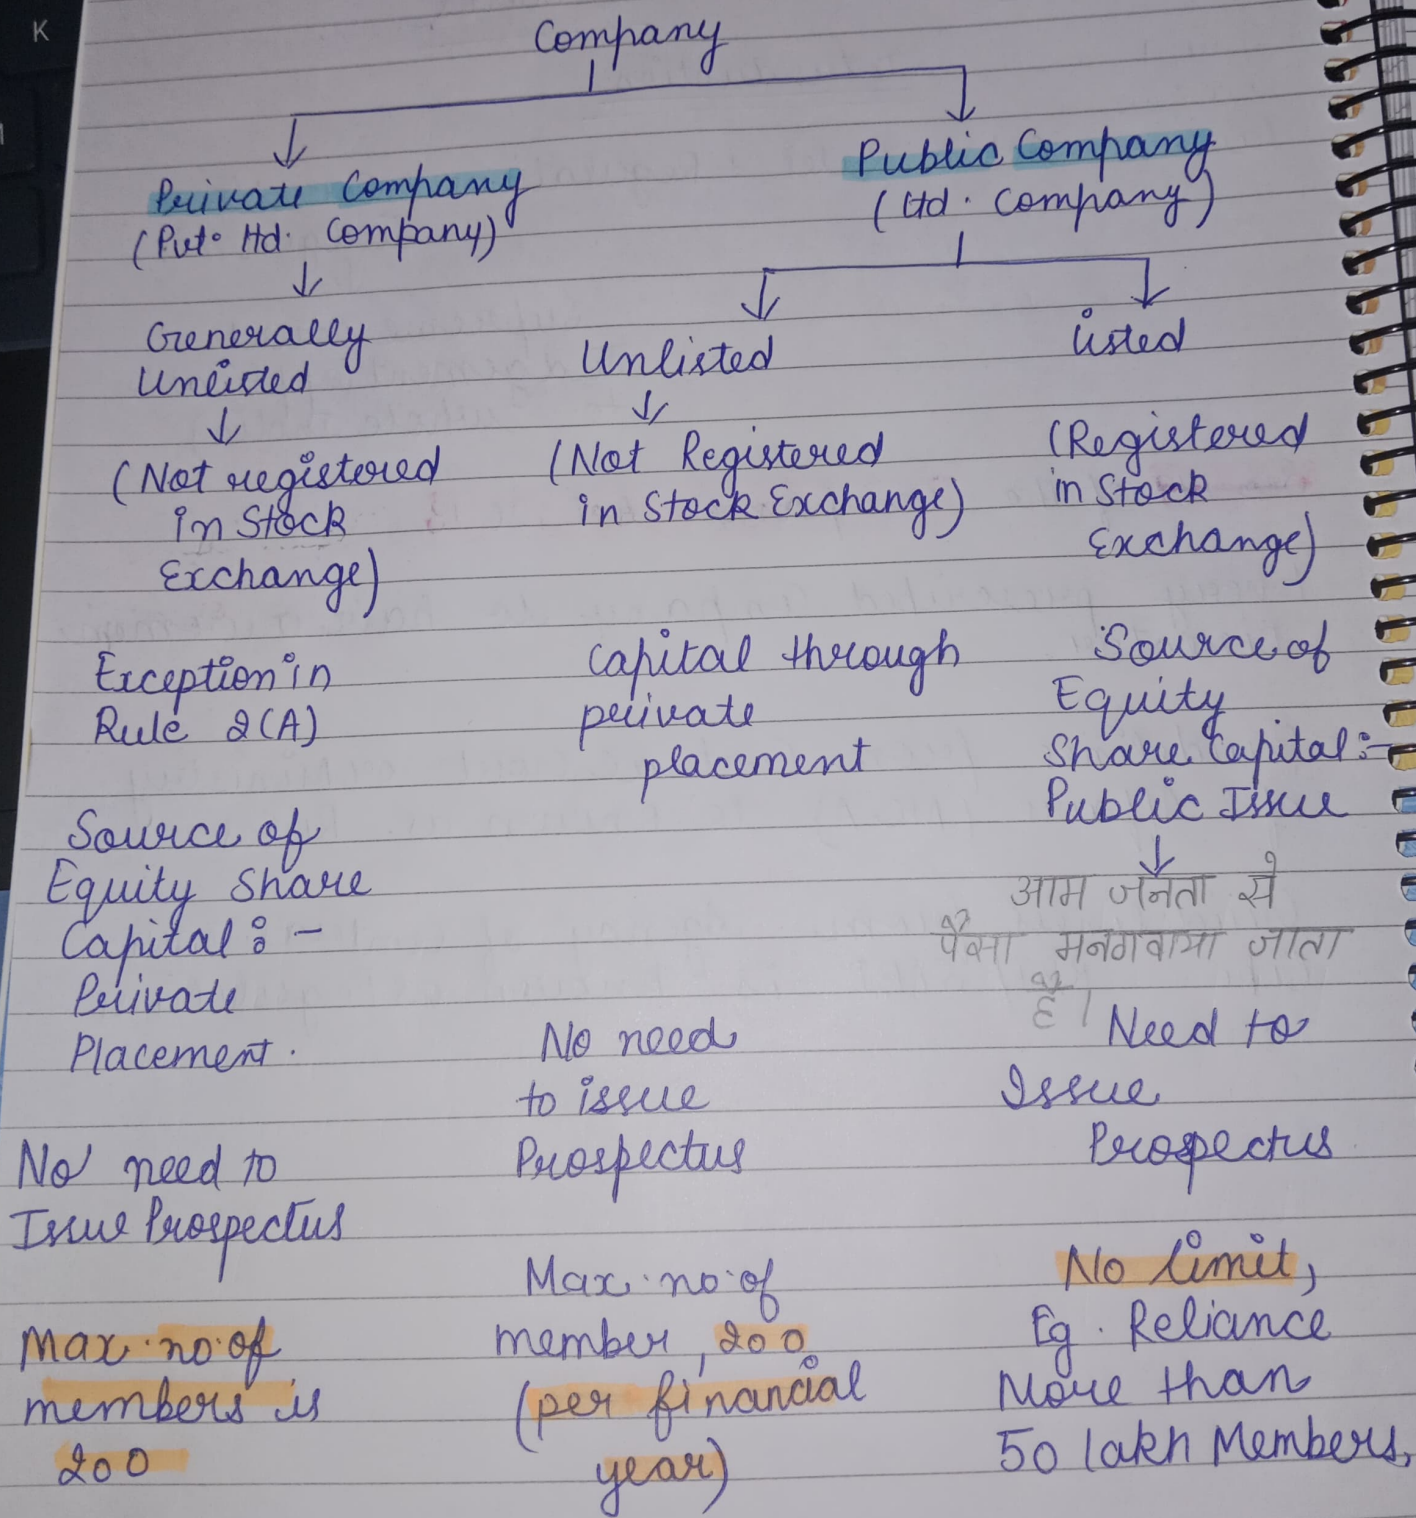 K
Company
Private Company
(Pvt. Ltd. Company)
Generally
Unlisted
(Not registered
in Stock
Exchange)
Exception in
Rule 2(A)
Source of
Equity Share
Capital :-
Private
Placement.
No need to
Issue Prospectus
Max. no. of
members is
200
Public Company
(Ltd. Company)
Unlisted
(Not Registered
in Stock Exchange)
Capital through
private
placement
No need
to issue
Prospectus
Max. no. of
member, 200
(per financial
year)
listed
(Registered
in Stock
Exchange)
Source of
Equity
Share Capital :-
Public Issue
आम जनता से
पैसा मनगवाया जाता
है।
Need to
Issue
Prospectus
No limit,
Eg. Reliance
More than
50 lakh Members,